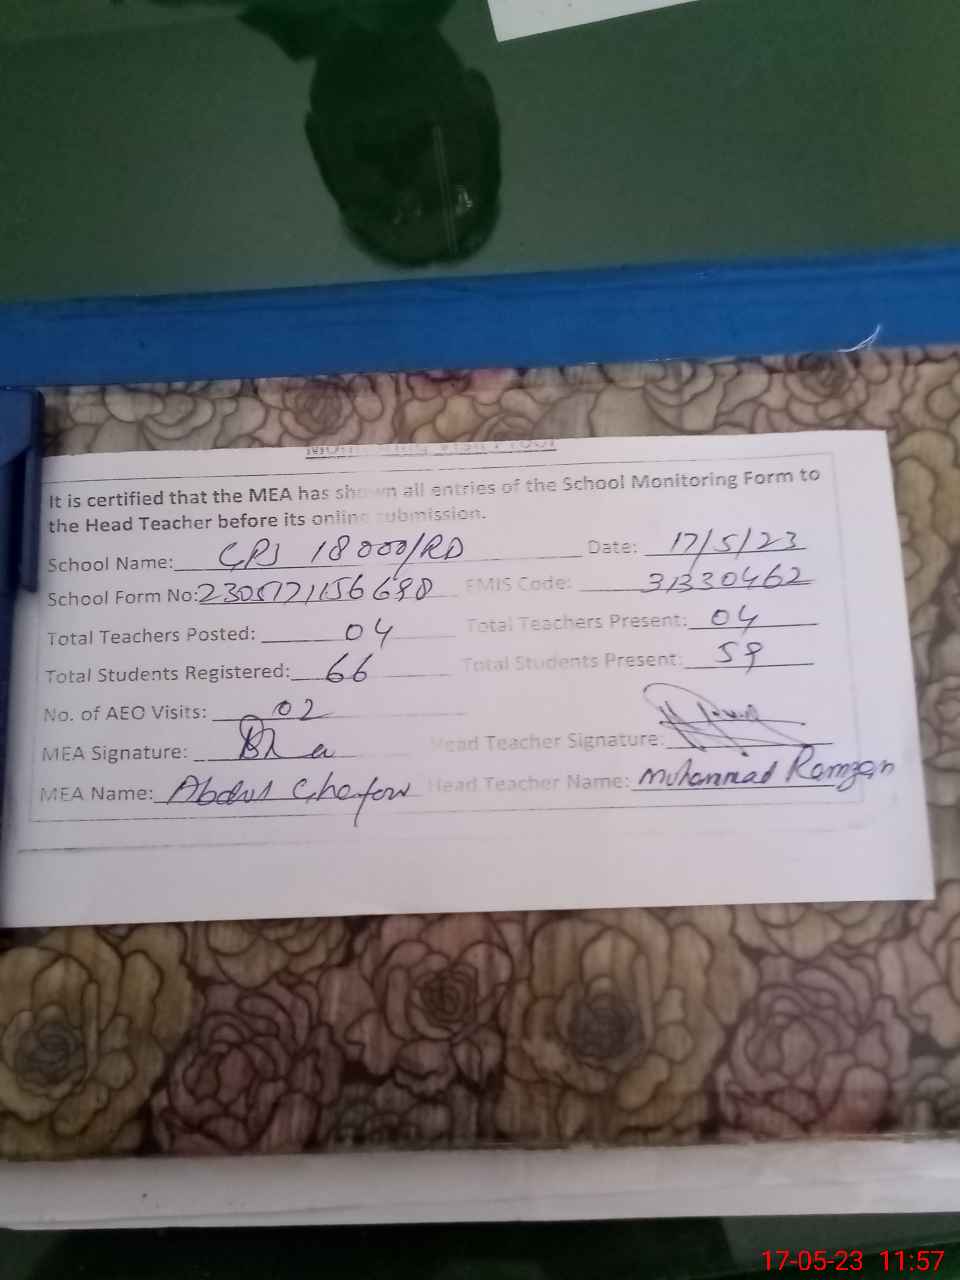 Monitoring Visit Proof
It is certified that the MEA has shown all entries of the School Monitoring Form to
the Head Teacher before its online submission.
School Name: GPS 18000/RD Date: 17/5/23
School Form No: 230517115669 8 EMIS Code: 31330462
Total Teachers Posted: 04 Total Teachers Present: 04
Total Students Registered: 66 Total Students Present: 59
No. of AEO Visits: 02
MEA Signature: Head Teacher Signature:
MEA Name: Abdul Ghafoor Head Teacher Name: Muhammad Ramzan
17-05-23 11:57